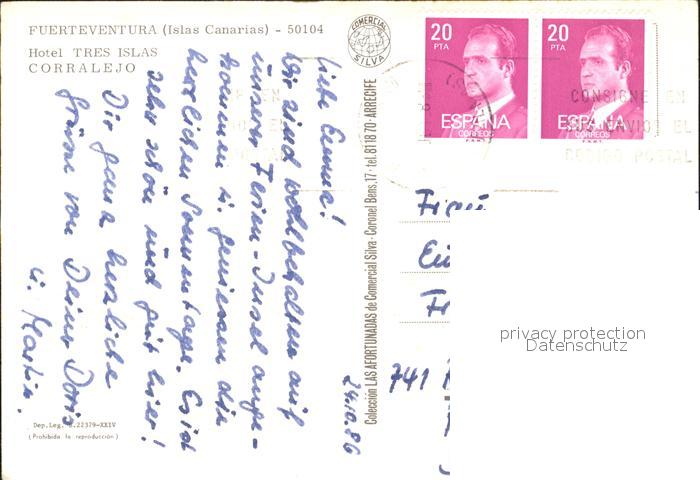 FUERTEVENTURA (Islas Canarias) - 50104
Hotel TRES ISLAS
CORRALEJO
COMERCIAL
SILVA
20
PTA
ESPAÑA
CORREOS
20
PTA
ESPAÑA
CORREOS
CONSIGNE EN
EL
CODIGO POSTAL
24.10.86
Liebe Emma!
Wir sind wohlbehalten auf
unserer Ferien-Insel ange-
kommen u. geniessen die
herrlichen Sonnentage. Es ist
sehr schön und gut hier!
Dir ganz herzliche
Grüsse von Deiner Doris
u. Martin.
Colección LAS AFORTUNADAS de Comercial Silva · Coronel Bens, 17 · tel. 81 18 70 · ARRECIFE
741
privacy protection
Datenschutz
Dep. Leg. B.22379-XXIV
(Prohibida la reproducción)